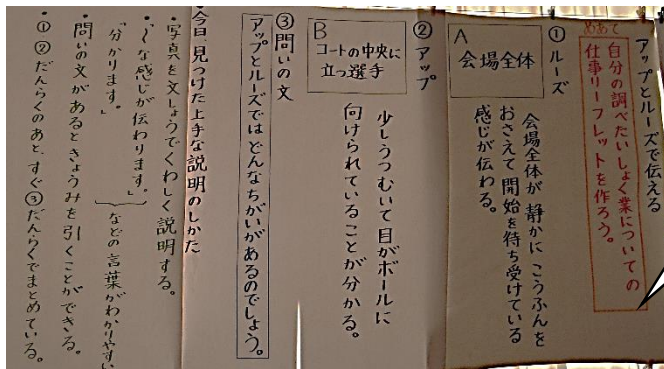 アップとルーズで伝える
めあて
自分の調べたいしょく業についての
仕事リーフレットを作ろう。
①ルーズ
A
会場全体
会場全体が静かにこうふんを
おさえて開始を待ち受けている
感じが伝わる。
②アップ
B
コートの中央に
立つ選手
少しうつむいて目がボールに
向けられていることが分かる。
③問いの文
アップとルーズではどんなちがいがあるのでしょう。
今日、見つけた上手な説明のしかた
・写真を文しょうでくわしく説明する。
・「〜な感じが伝わります。」
「分かります。」
などの言葉がわかりやすい
・問いの文があるときょうみを引くことができる。
・①②だんらくのあと、すぐ③だんらくでまとめている。